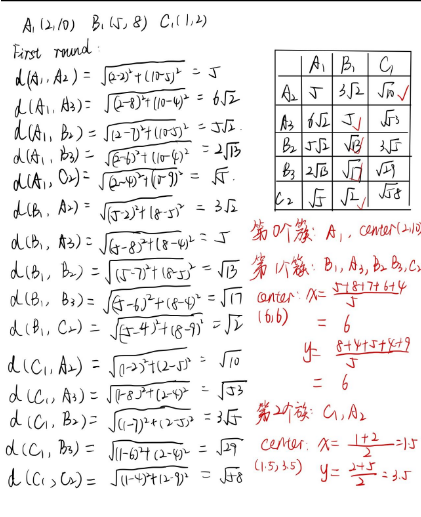 A₁(2,10) B₁(5,8) C₁(1,2)
First round:
d(A₁,A2) = √(2-2)²+(10-5)² = 5
d(A₁,A3) = √(2-8)²+(10-4)² = 6√2
d(A₁,B₂) = √(2-7)²+(10-5)² = 5√2.
d(A₁,B₃) = √(2-6)²+(10-4)² = 2√13
d(A₁,C₂) = √(2-4)²+(10-9)² = √5.
d(B₁,A2) = √(5-2)²+(8-5)² = 3√2
d(B₁,A3) = √(5-8)²+(8-4)² = 5
d(B₁,B₂) = √(5-7)²+(8-5)² = √13
d(B₁,B₃) = √(5-6)²+(8-4)² = √17
d(B₁,C₂) = √(5-4)²+(8-9)² = √2
d(C₁,A2) = √(1-2)²+(2-5)² = √10
d(C₁,A3) = √(1-8)²+(2-4)² = √53
d(C₁,B₂) = √(1-7)²+(2-5)² = 3√5
d(C₁,B₃) = √(1-6)²+(2-4)² = √29
d(C₁,C₂) = √(1-4)²+(2-9)² = √58
A₁ B₁ C₁
A₂ 5 3√2 √10 ✓
A3 6√2 5 ✓ √53
B₂ 5√2 √13 ✓ 3√5
B₃ 2√13 √17 ✓ √29
C₂ √5 √2 ✓ √58
第0个簇: A₁, center(2,10)
第1个簇: B₁, A3, B₂ B₃, C₂
center: x = (5+8+7+6+4)/5
(6,6) = 6
y = (8+4+5+4+9)/5
= 6
第2个簇: C₁, A2
center: x = (1+2)/2 = 1.5
(1.5,3.5) y = (2+5)/2 = 3.5